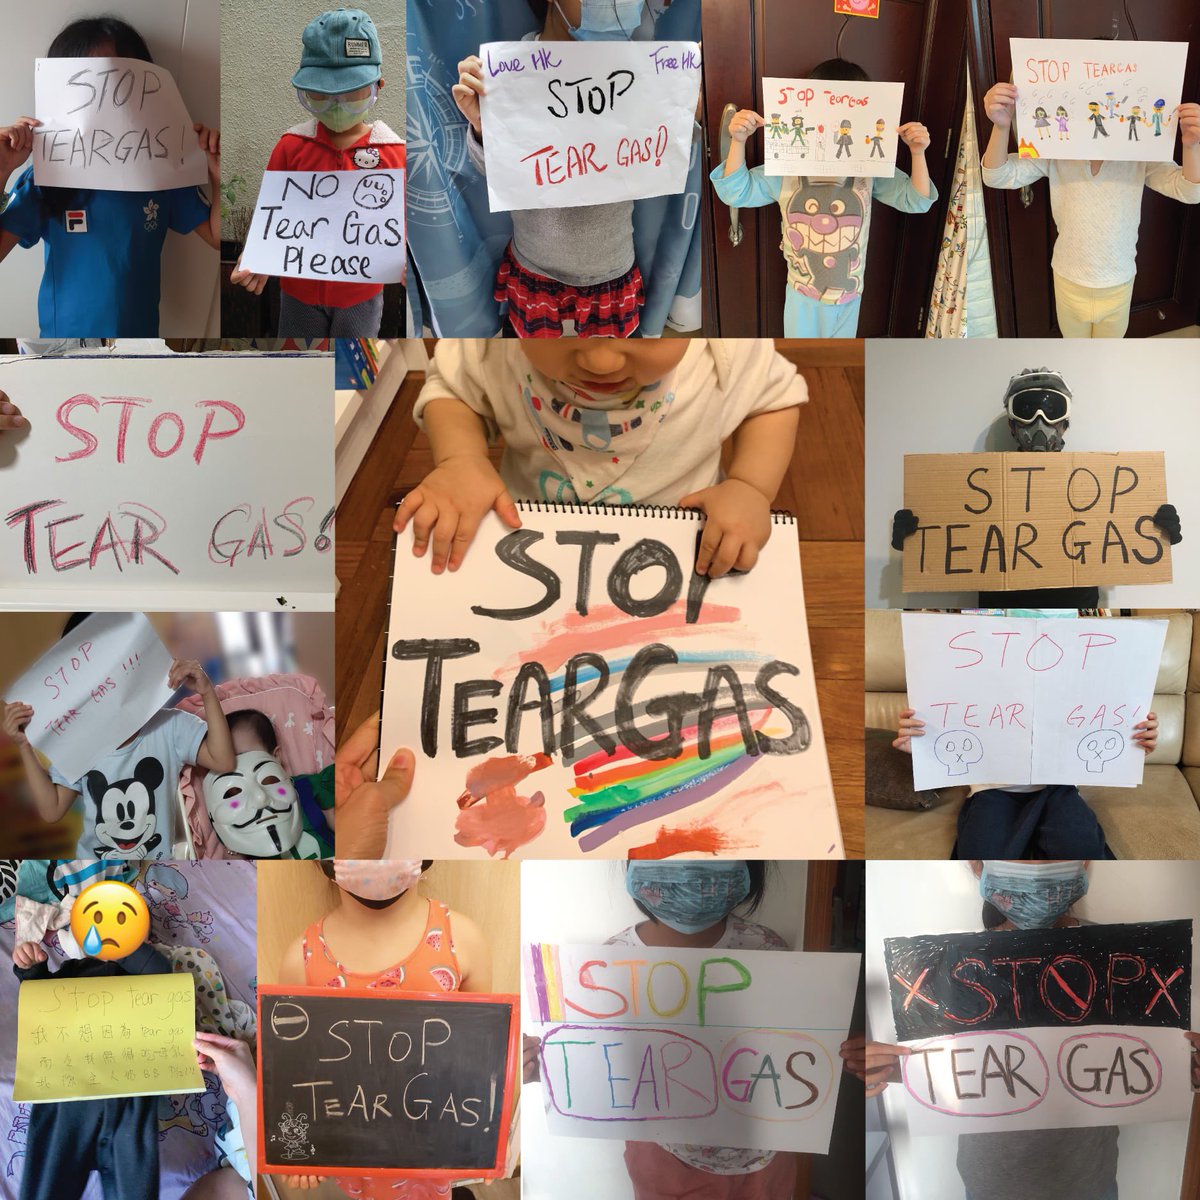 STOP
TEARGAS!
RUNNER
NO
Tear Gas
Please
Love HK
Free HK
STOP
TEAR GAS!
STOP TearGas
STOP TEARGAS
FILA
STOP
TEAR GAS!
STOP
TEARGAS
STOP
TEAR GAS
STOP
TEAR GAS!!!
STOP
TEAR GAS!
Stop tear gas
我不想因為 tear gas
而令我無得食母乳
STOP
TEAR GAS!
STOP
TEAR GAS
X STOP X
TEAR GAS